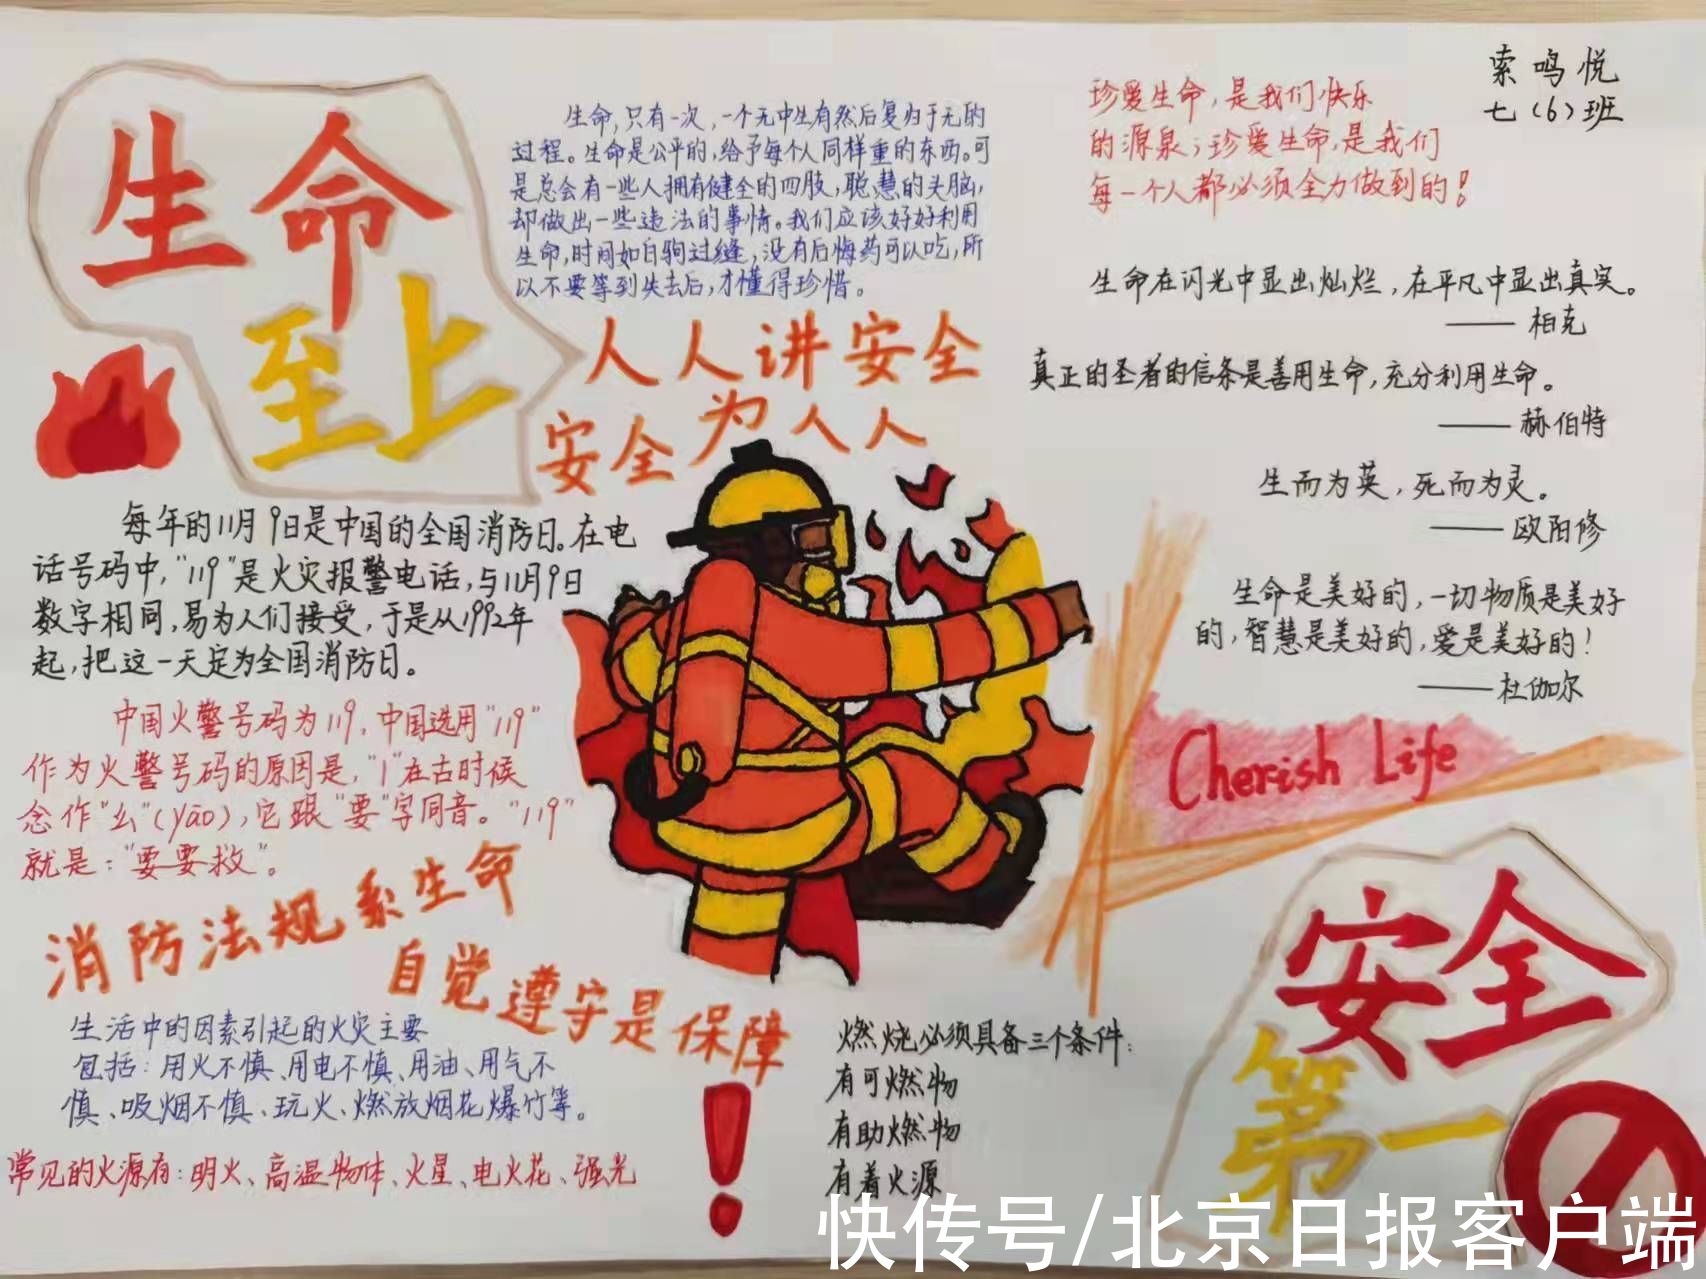 生命
至上
生命,只有一次,一个无中生有然后复归于无的
过程。生命是公平的,给予每个人同样重的东西。可
是总会有一些人拥有健全的四肢,聪慧的头脑,
却做出一些违法的事情。我们应该好好利用
生命,时间如白驹过缝,没有后悔药可以吃,所
以不要等到失去后,才懂得珍惜。
珍爱生命,是我们快乐
的源泉;珍爱生命,是我们
每一个人都必须全力做到的!
索鸣悦
七(6)班
人人讲安全
安全为人人
生命在闪光中显出灿烂,在平凡中显出真实。
——柏克
真正的圣者的信条是善用生命,充分利用生命。
——赫伯特
生而为英,死而为灵。
——欧阳修
生命是美好的,一切物质是美好
的,智慧是美好的,爱是美好的!
——杜伽尔
每年的11月9日是中国的全国消防日。在电
话号码中,"119"是火灾报警电话,与11月9日
数字相同,易为人们接受,于是从1992年
起,把这一天定为全国消防日。
中国火警号码为119,中国选用"119"
作为火警号码的原因是,"1"在古时候
念作"幺"(yāo),它跟"要"字同音。"119"
就是:"要要救"。
Cherish Life
消防法规系生命
自觉遵守是保障
!
生活中的因素引起的火灾主要
包括:用火不慎、用电不慎、用油、用气不
慎、吸烟不慎、玩火、燃放烟花爆竹等。
常见的火源有:明火、高温物体、火星、电火花、强光
燃烧必须具备三个条件:
有可燃物
有助燃物
有着火源
安全
第一
快传号/北京日报客户端